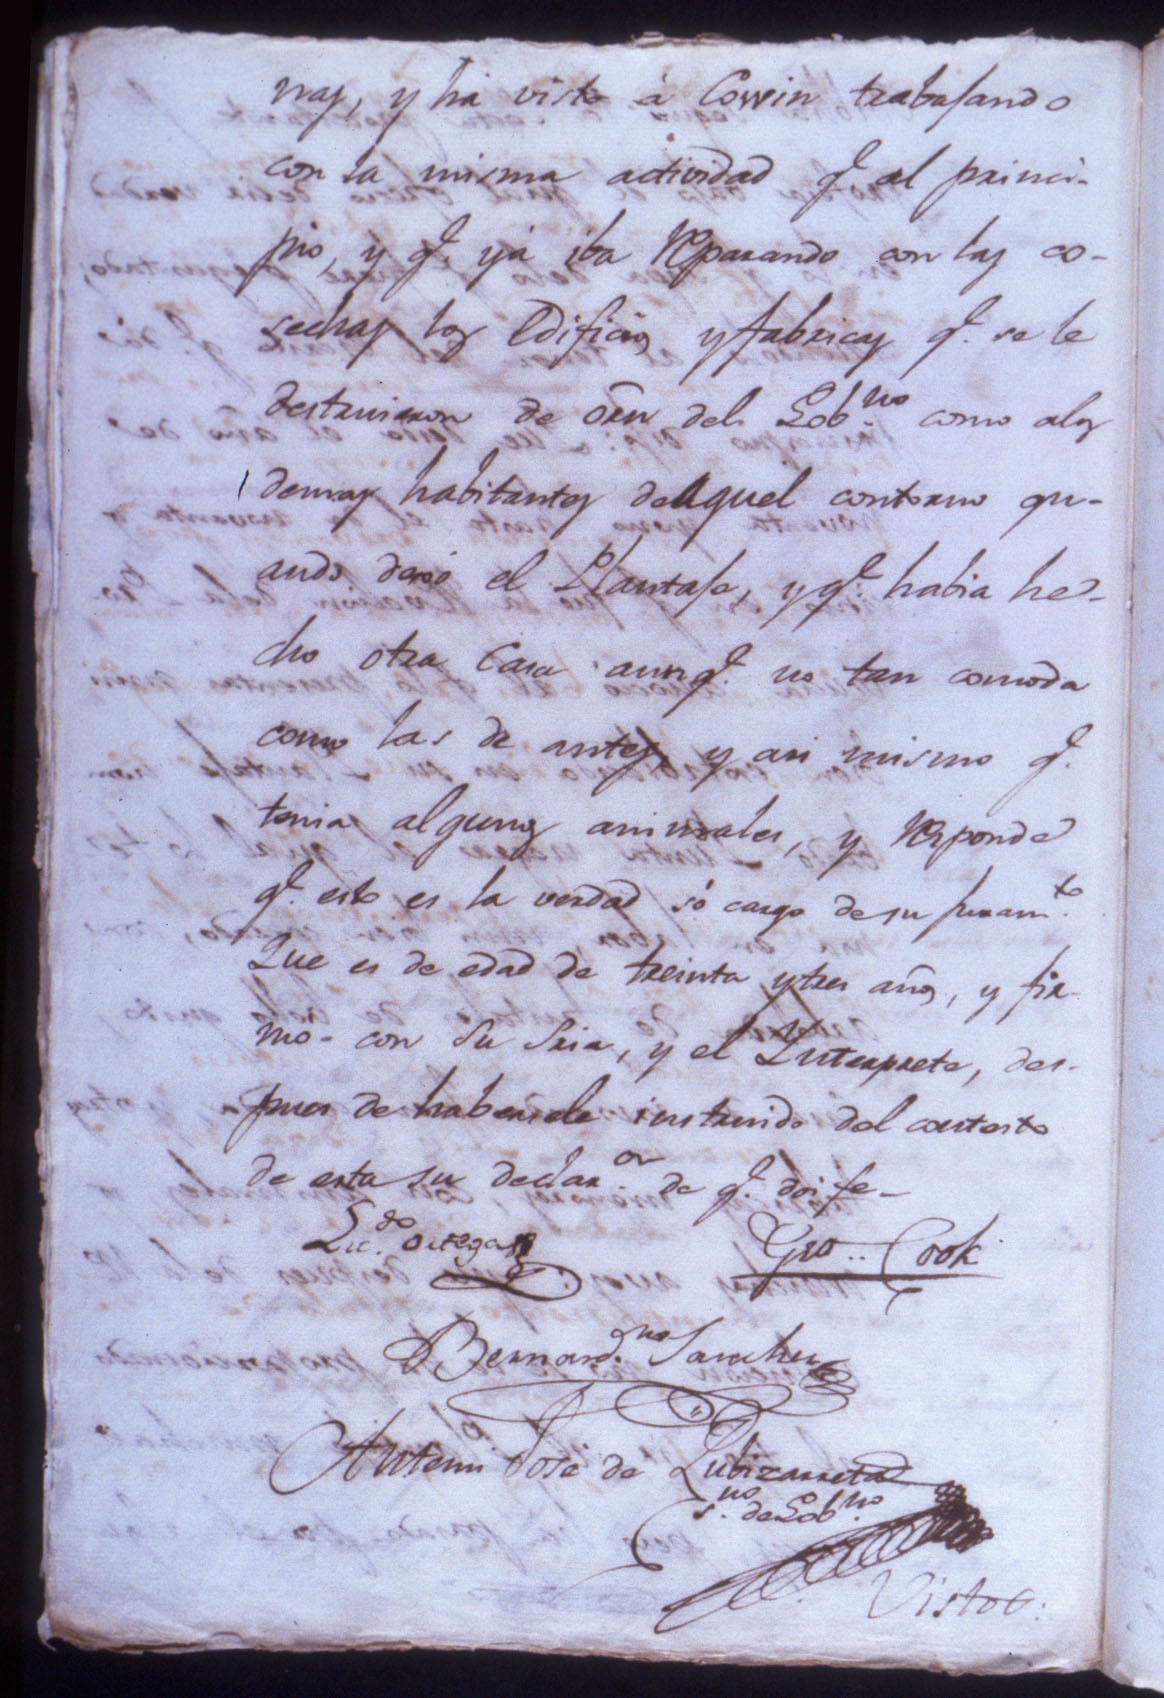 nas, y ha visto á Corrin trabajando
con la misma actividad q.e al princi-
pio, y q.e ya iba reparando con las co-
sechas los Edificios y fabricas q.e se le
destruieron de orn del Gob.no como alos
demas habitantes de aquel contorno qu-
ando dexó el Plantaje, y q.e habia he-
cho otra Casa aunq.e no tan comoda
como las de antes, y asi mismo q.e
tenia algunos animales, y responde
q.e esto es la verdad só cargo de su juram.to
Que es de edad de treinta y tres años, y fir-
mó- con Su Sria, y el Ynterprete, des-
pues de habersele instruido del contesto
de esta su declar.on de q.e doi fe-
Lic.do Ortega
Geo.. Cook
Bernard.no Sanchez
Antem̃i José de Zubizarreta
s.no de Gob.no
Vistos: